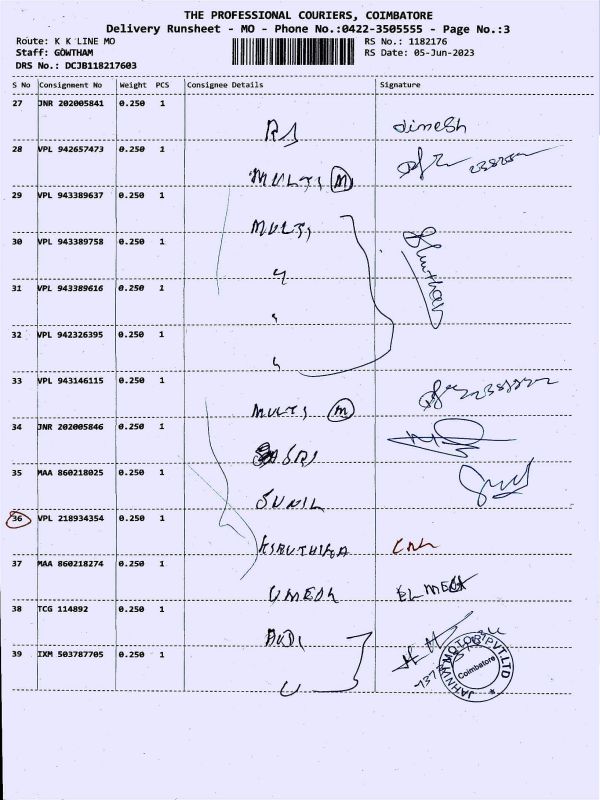 THE PROFESSIONAL COURIERS, COIMBATORE
Delivery Runsheet - MO - Phone No.:0422-3505555 - Page No.:3
Route: K K LINE MO RS No.: 1182176
Staff: GOWTHAM RS Date: 05-Jun-2023
DRS No.: DCJB118217603
S No Consignment No Weight PCS Consignee Details Signature
27 JNR 202005841 0.250 1
RJ dinesh
28 VPL 942657473 0.250 1
MULTI M
29 VPL 943389637 0.250 1
MULTI
30 VPL 943389758 0.250 1
31 VPL 943389616 0.250 1
32 VPL 942326395 0.250 1
33 VPL 943146115 0.250 1
MULTI M
34 JNR 202005846 0.250 1
35 MAA 860218025 0.250 1
SUNIL
36 VPL 218934354 0.250 1
KIRUTHIKA
37 MAA 860218274 0.250 1
UMESH
38 TCG 114892 0.250 1
AUDI
39 IXM 503787705 0.250 1
JAHNVI MOTOR PVT.LTD
Coimbatore